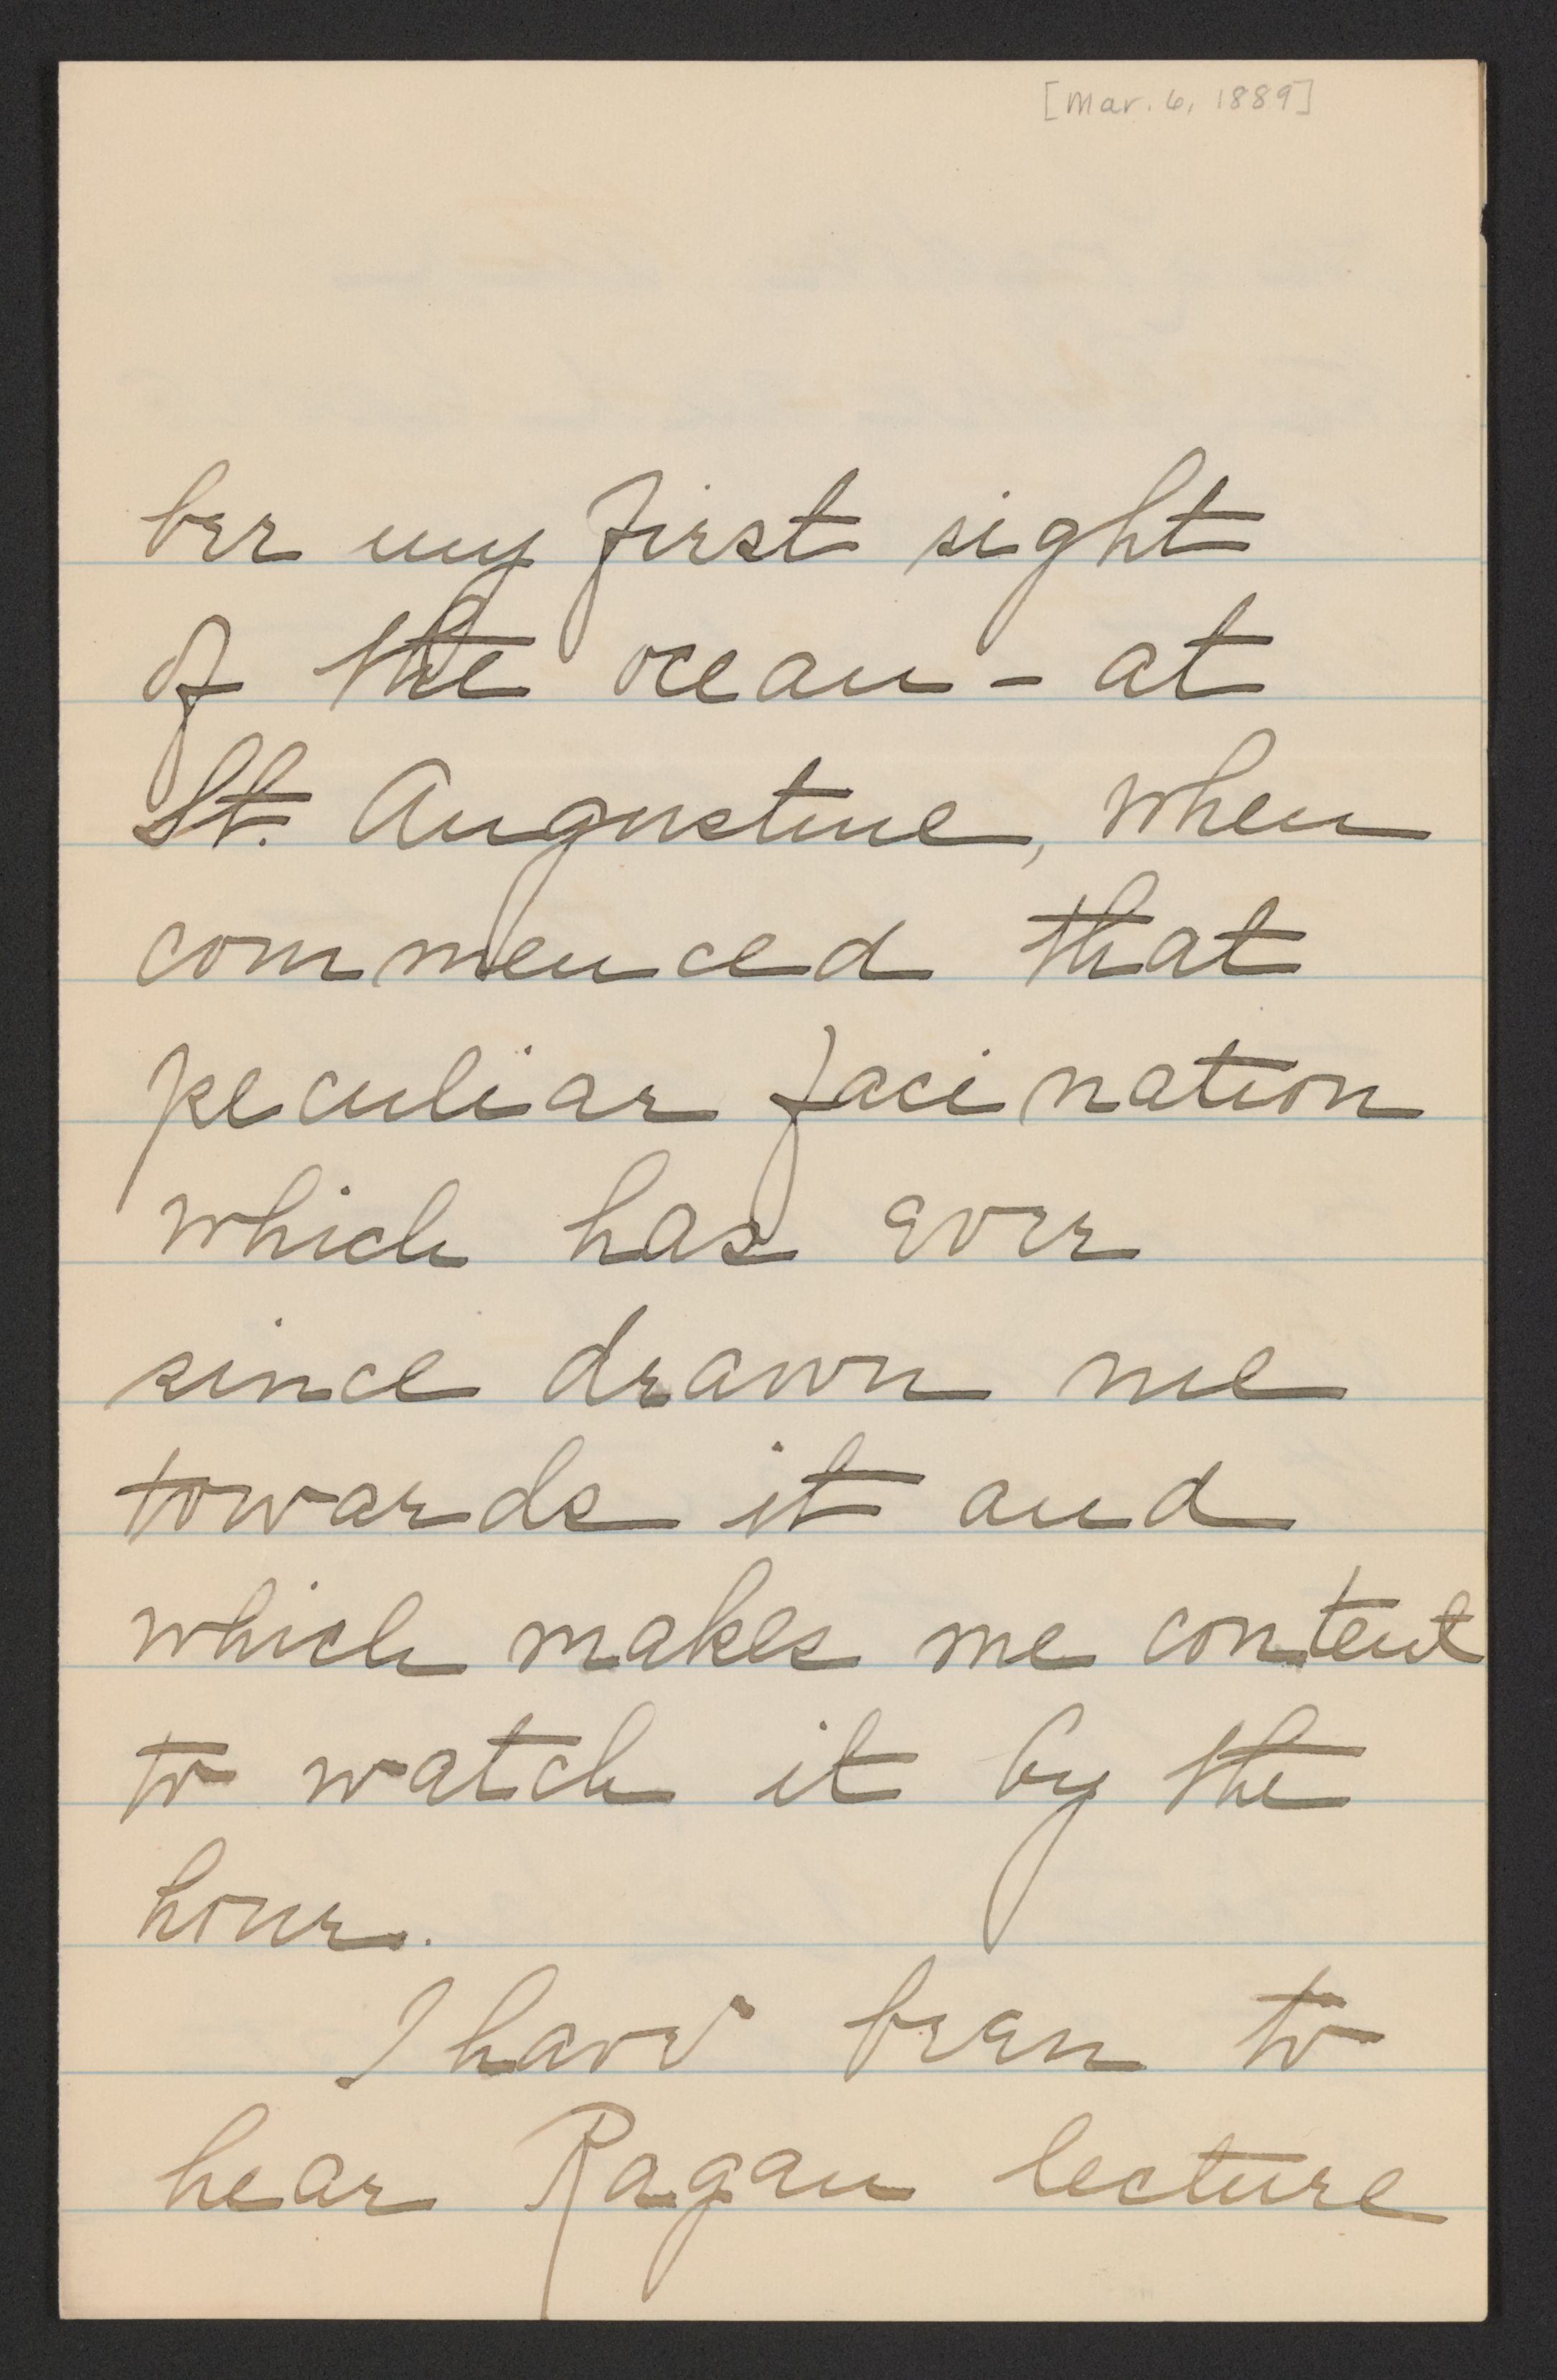 [Mar. 6, 1889]
ber my first sight
of the ocean - at
St. Augustine, when
commenced that
peculiar facination
which has ever
since drawn me
towards it and
which makes me content
to watch it by the
hour.
I have been to
hear Ragan lecture